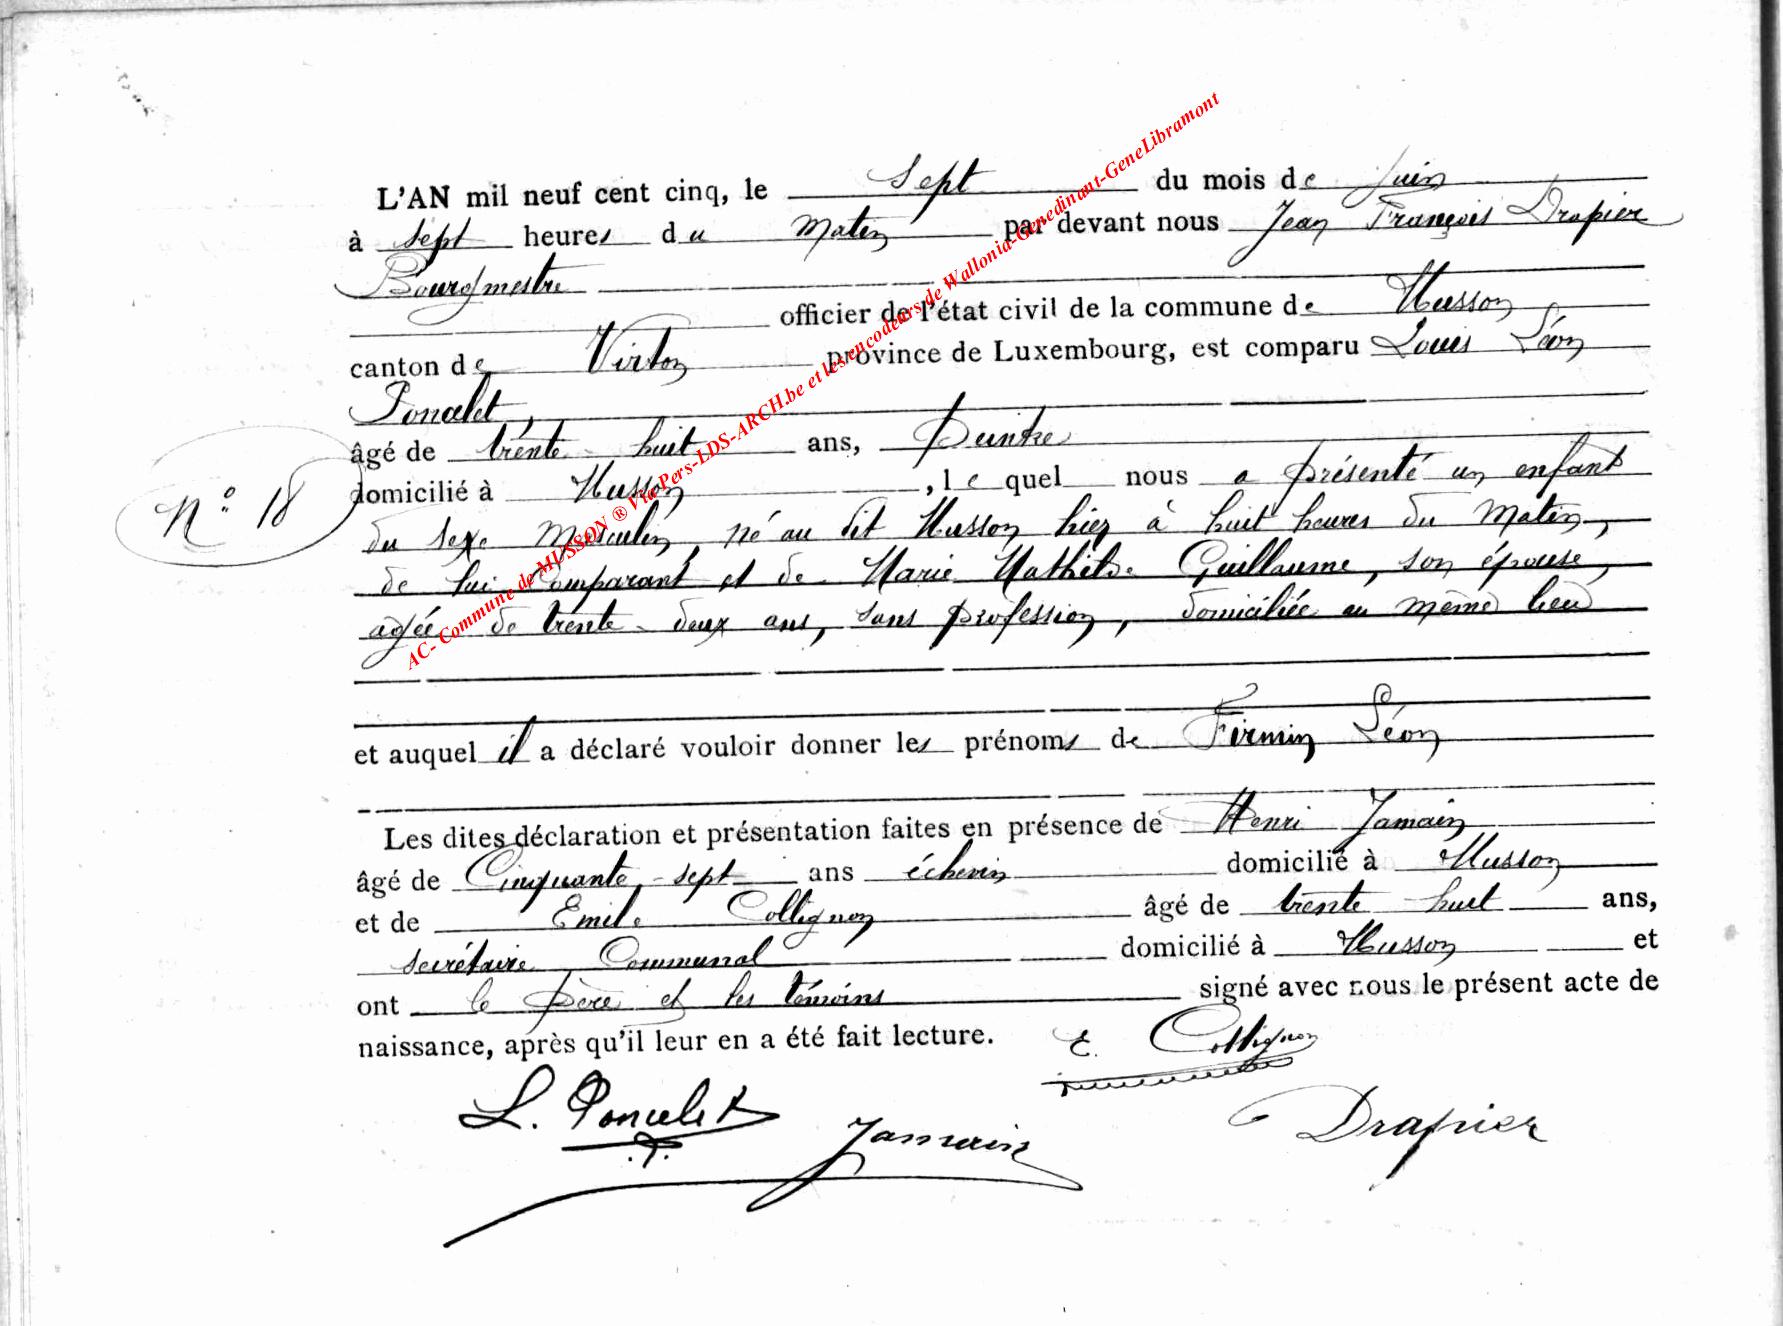 L'AN mil neuf cent cinq, le sept du mois de juin
à sept heures du matin par devant nous Jean François Drapier
Bourgmestre
officier de l'état civil de la commune de Musson
canton de Virton province de Luxembourg, est comparu Louis Léon
Poncelet,
âgé de trente-huit ans, Peintre
N° 18
domicilié à Musson, lequel nous a présenté un enfant
du sexe masculin, né au dit Musson hier à huit heures du matin,
de lui comparant et de Marie Mathilde Guillaume, son épouse,
agée de trente-deux ans, sans profession, domiciliée au même lieu
et auquel il a déclaré vouloir donner les prénoms de Firmin Léon
Les dites déclaration et présentation faites en présence de Henri Jamain
âgé de Cinquante-sept ans échevin domicilié à Musson
et de Emile Collignon âgé de trente huit ans,
secrétaire Communal domicilié à Musson et
ont le père et les témoins signé avec nous le présent acte de
naissance, après qu'il leur en a été fait lecture. E. Collignon
L. Poncelet Jamain Drapier
AC- Commune de MUSSON ® Via Pers-LDS-ARCH.be et les encodeurs de Wallonia-Genedinant-GeneLibramont